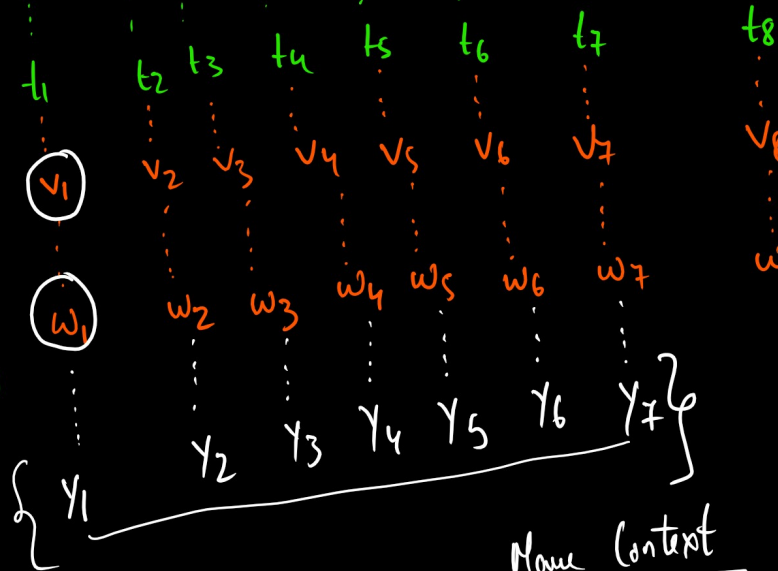 t1 t2 t3 t4 t5 t6 t7 t8
v1 v2 v3 v4 v5 v6 v7 v8
w1 w2 w3 w4 w5 w6 w7 w
{ y1 y2 y3 y4 y5 y6 y7 }
Context